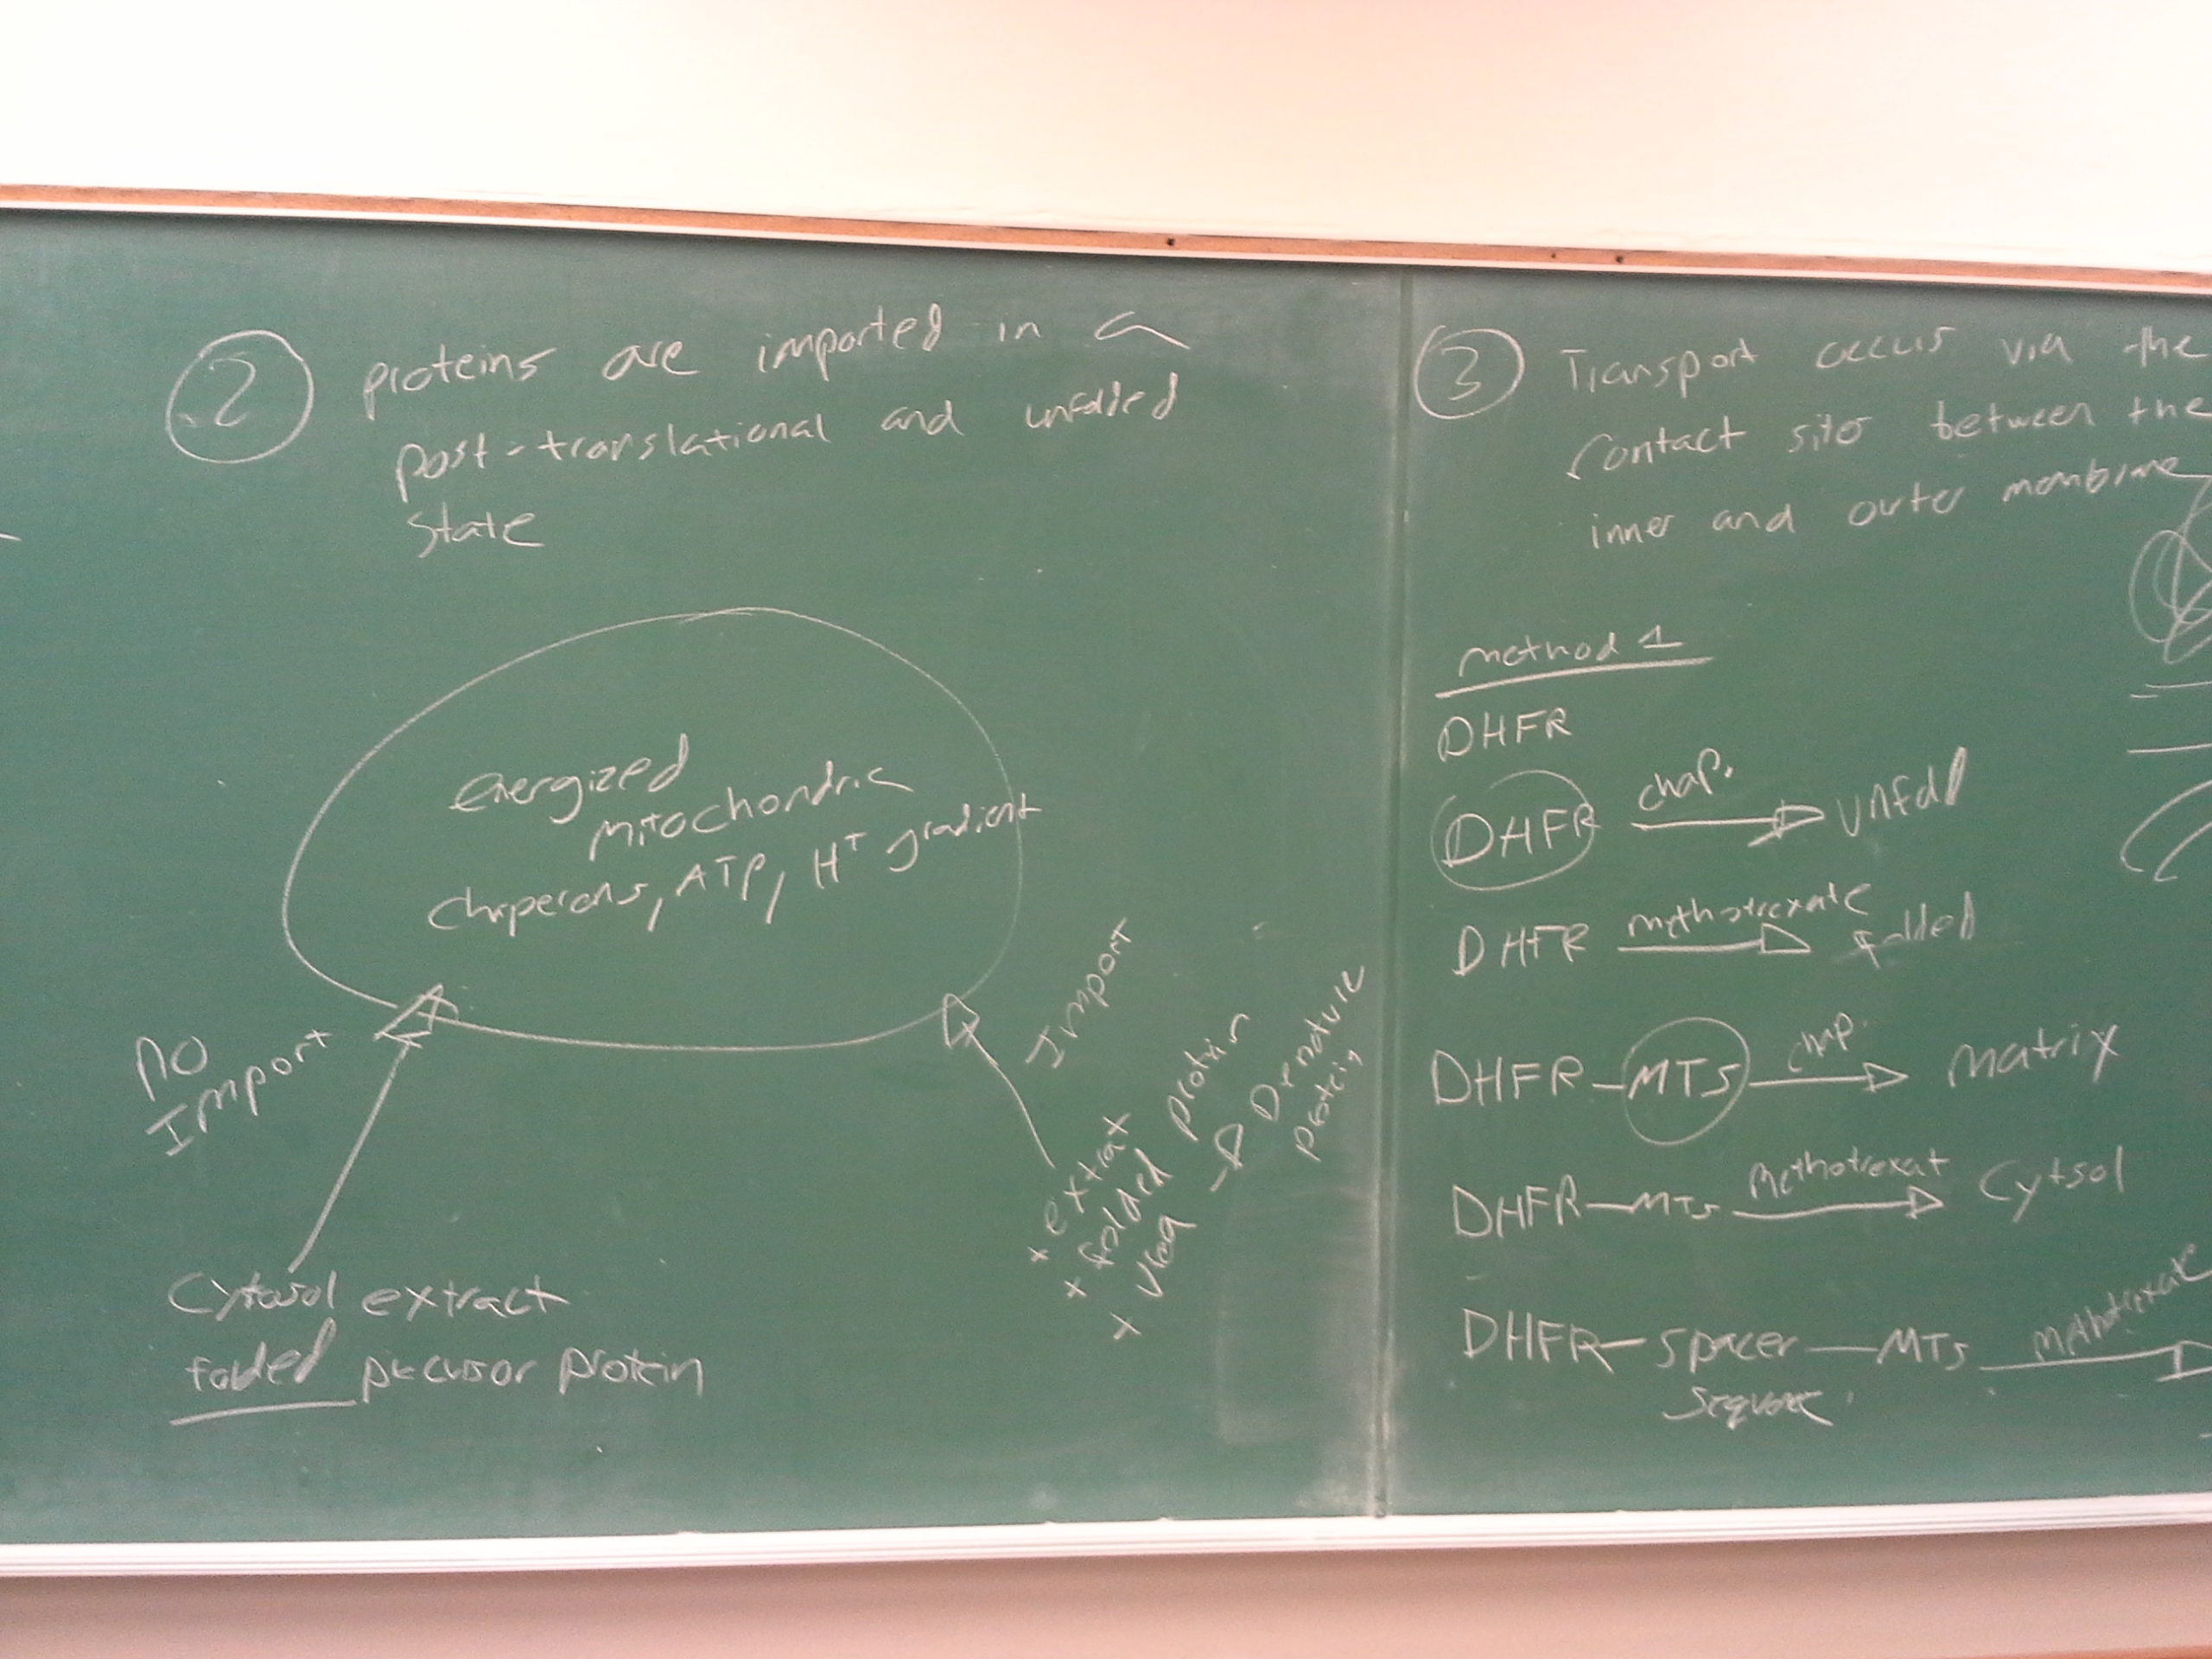 2 proteins are imported in a
post-translational and unfolded
state
energized
mitochondria
chaperons, ATP, H+ gradient
NO
Import
Cytosol extract
folded precursor protein
Import
x extrax
x folded protein
x Urea → Denature
protein
3 Transport occurs via the
contact sites between the
inner and outer membrane
method 1
DHFR
DHFR chap. → unfold
DHFR methotrexate → folded
DHFR-MTS → matrix
DHFR-MTS Methotrexat → Cytsol
DHFR-spacer-MTS methotrexate →
sequence